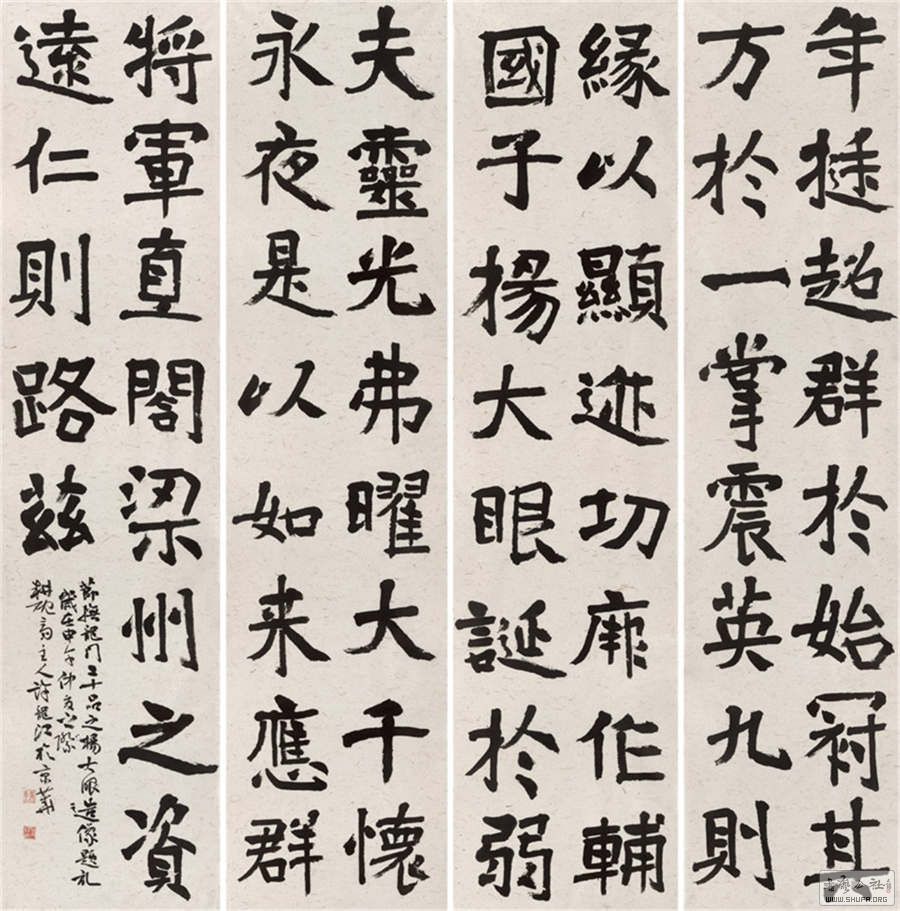 年挺超群於始冠其
方於一掌震英九則
緣以顯迹切作輔
國子楊大眼誕於弱
夫靈光弗曜大千懷
永夜是以如来應群
將軍直閣梁州之資
遠仁則路茲
節橅龍門二十品之楊大眼造像題記
歲在甲午仲夏之際
耕硯齋主人許龍江於京華
WWW.SHUFA.ORG